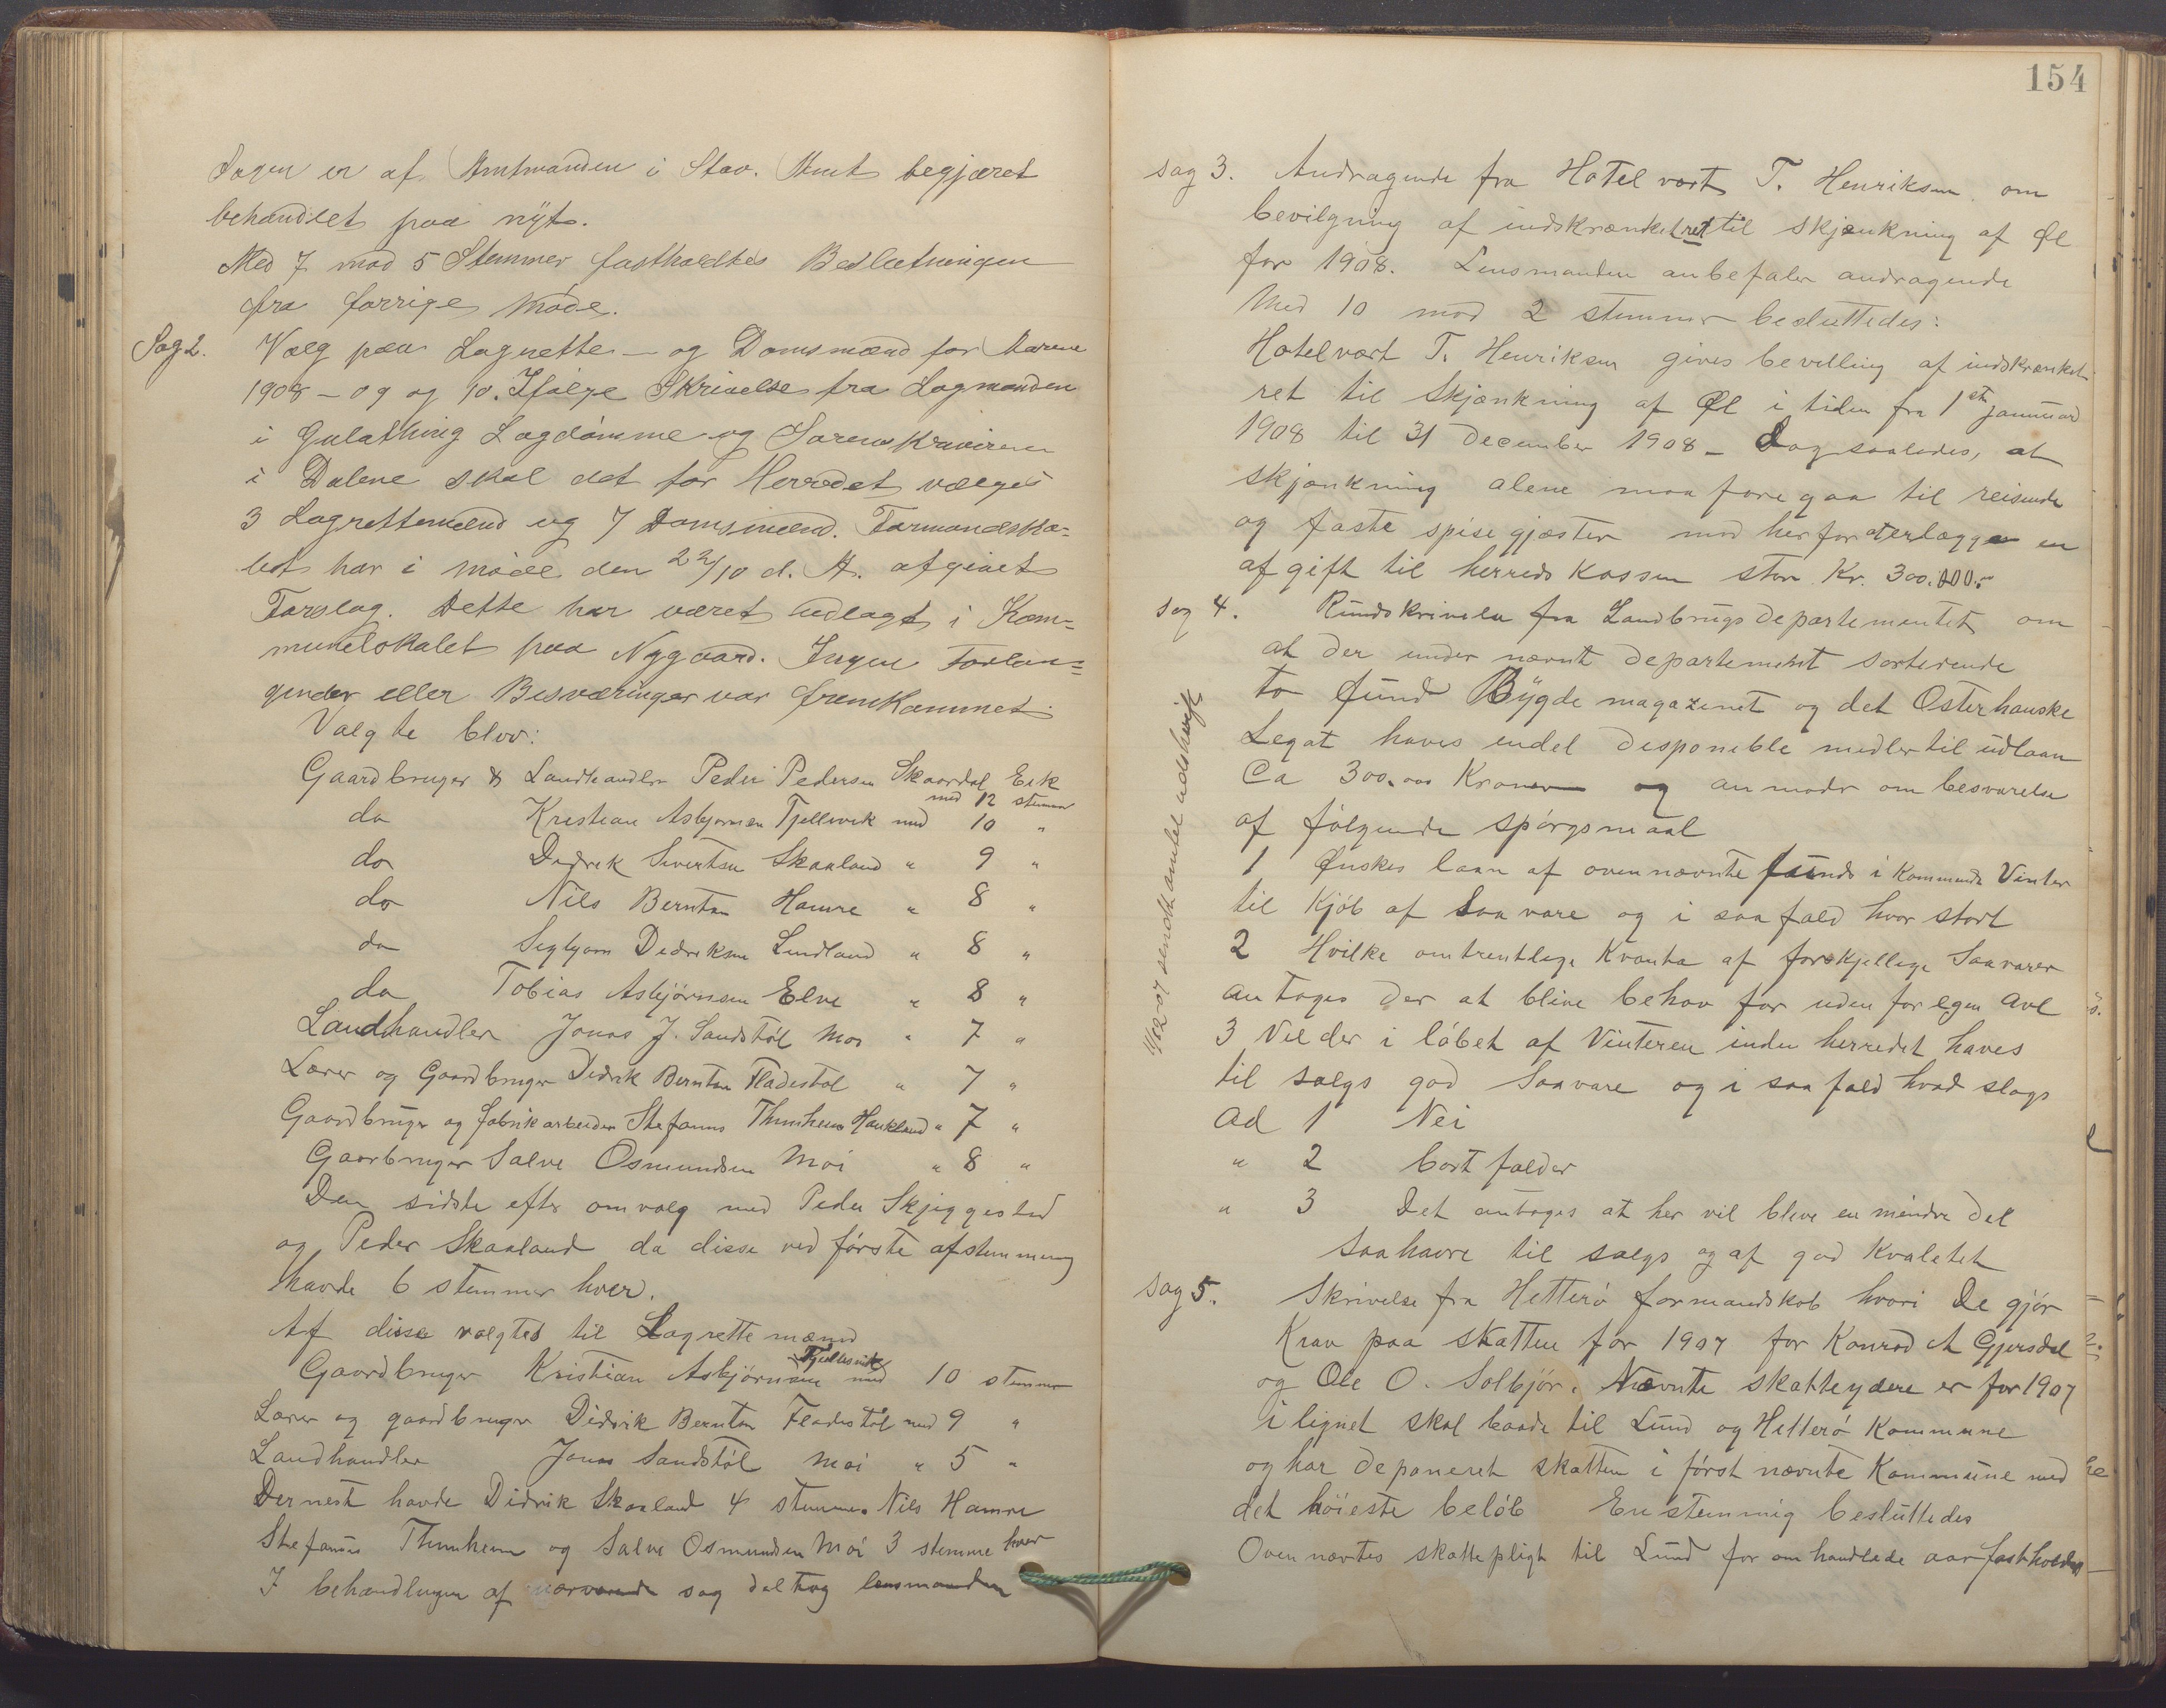 Sagen er af Amtmanden i Stav. Amt begjæret
behandlet paa nÿt.
Med 7 mod 5 Stemmer fastholdtes Beslutningen
fra forrige Møde.
Sag 2. Valg paa Lagrette- og Domsmænd for Aarene
1908 - 09 og 10. Ifølge Skrivelse fra Lagmanden
i Gulathing Lagdømme og Sorenskriveren
i Dalene skal det for Herredet vælges
3 Lagrettemænd og 7 Domsmænd. Formandska=
bet har i møde den 22/10 d. A. afgivet
Forslag. Dette har været udlagt i Kom=
munelokalet paa Nygaard. Ingen Forlan=
gender eller Besværinger var fremkommet.
Valgte blev:
Gaardbruger & Landhandler Peder Pedersen Skaardal Eik
med 12 stemmer
do Kristian Asbjørnsen Fjellesvik med 10 "
do Didrik Sivertsen Skaaland " 9 "
do Nils Berntsen Hamre " 8 "
do Sigbjørn Didriksen Lindland " 8 "
do Tobias Asbjørnsen Elve " 8 "
Landhandler Jonas J. Sandstøl Moi " 7 "
Lærer og Gaardbruger Didrik Berntsen Fladestøl " 7 "
Gaardbruger og fabrikarbeider Stefanus Thunheim Haukland " 7 "
Gaarbruger Salve Osmundsen Moi " 8 "
Den sidste efter omvalg med Peder Skjeggestad
og Peder Skaaland da disse ved første afstemning
havde 6 stemmer hver.
Af disse valgtes til Lagrettemænd
Gaardbruger Kristian Asbjørnsen Fjellesvik med 10 stemmer
Lærer og gaardbruger Didrik Berntsen Fladestøl med 9 "
Landhandler Jonas Sandstøl Moi " 5 "
Dernest havde Didrik Skaaland 4 stemmer. Nils Hamre
Stefanus Thunheim og Salve Osmundsen Moi 3 stemme hver
I behandlingen af nærværende sag deltog lensmanden
154
Sag 3. Andragende fra Hotelvært T. Henriksen om
bevilgning af indskrænket ret til skjænkning af Øl
for 1908. Lensmanden anbefaler andragende
Med 10 mod 2 stemmer besluttedes:
Hotelvært T. Henriksen gives bevilling af indskrænket
ret til Skjænkning af Øl i tiden fra 1ste januar
1908 til 31 December 1908 - Dog saaledes, at
skjænkning alene maa foregaa til reisende
og faste spisegjæster mod herfor at erlægge en
afgift til herredskassen stor Kr. 300.
Sag 4. Rundskrivelse fra Landbrugsdepartementet om
at der under nævnt departement sorterende
to fund Bÿgdemagazinet og det Osterhauske
Legat haves endel disponible midler til udlaan
Ca 300.000 Kroner og anmoder om besvarelse
af følgende spørgsmaal
1 Ønskes laan af ovennævnte fund i kommende Vinter
til Kjøb af Saavare og i saafald hvor stort
2 Hvilke omtrentlige Kvanta af forskjellige Saavarer
antages der at blive behov for uden for egen avl
3 Vil der i løbet af Vinteren inden herredet haves
til salgs god Saavare og i saa fald hvad slags
ad 1 Nei
" 2 bortfalder
" 3 Det antages at her vil blive en mindre del
Saahavre til salgs og af god Kvalitet
11/12 07 sendt amtet udskrift
Sag 5. Skrivelse fra Hetterø formandskab hvori De gjør
Krav paa skatten for 1907 for Konrad A Gjersdal
og Ole O. Solbjør. Nævnte skatteydere er for 1907
ilignet skat baade til Lund og Hetterø Kommune
og har deponeret skatten i først nævnte Kommune med
det høieste beløb Enstemmig besluttedes
Ovennævntes skattepligt til Lund for omhandlede aar fastholdes